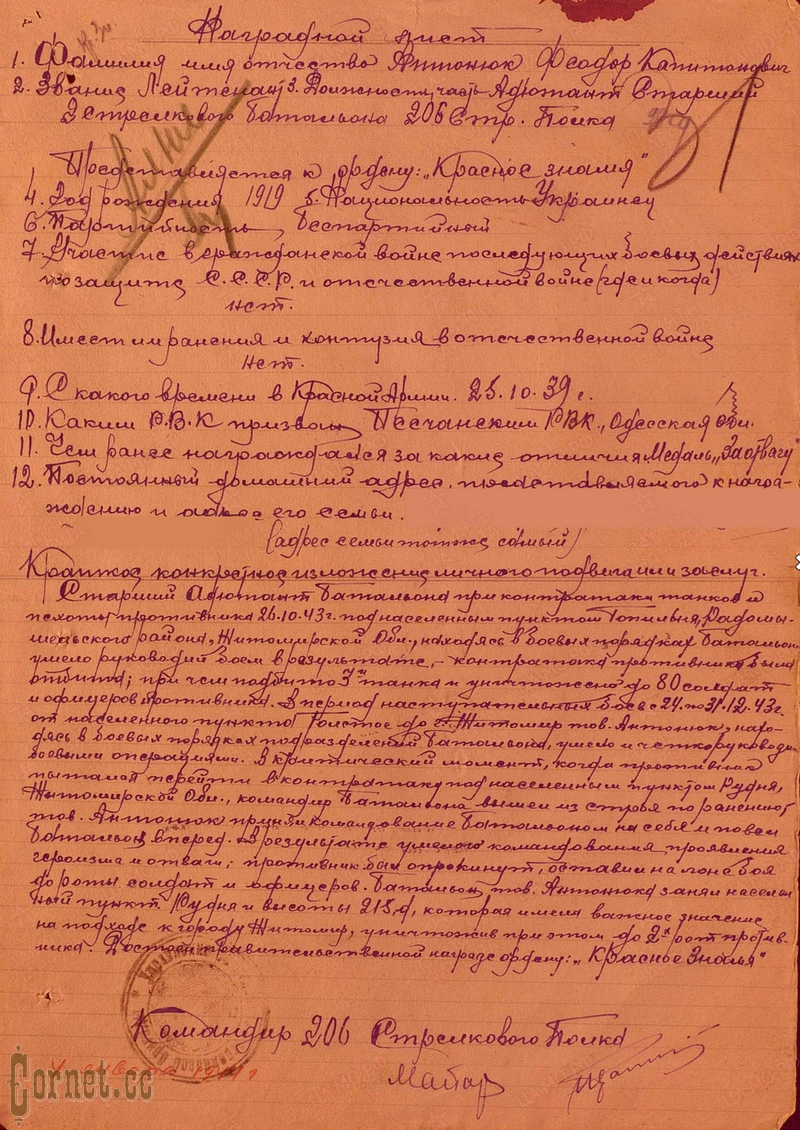 Наградной лист
1. Фамилия имя отчество Антонюк Феодор Капитонович
2. Звание Лейтенант 3. Должность, часть Адютант Старший
2 стрелкового батальона 206 Стр. Полка
Представляется к ордену: „Красное знамя"
4. Год рождения 1919 5. Национальность Украинец
6. Партийность, беспартийный
7. Участие в гражданской войне последующих боевых действиях
по защите С.С.С.Р. и отечественной войне (где и когда)
нет.
8. Имеет ли ранения и контузия в отечественной войне
нет.
9. С какого времени в Красной Армии. 25.10.39 г.
10. Каким Р.В.К призван Песчанским РВК., Одесская обл.
11. Чем ранее награждался за какие отличия Медаль „За отвагу"
12. Постоянный домашний адрес, представляемого к награ-
ждению и адрес его семьи.
(адрес семьи тот же самый)
Краткое конкретное изложение личного подвига или заслуг.
Старший Адютант батальона при контратаки танков и
пехоты противника 26.10.43 г. под населенным пунктом Топильня, Радомы-
шельского района, Житомирской Обл., находясь в боевых порядках батальона
умело руководил боем в результате, - контратака противника была
отбита; при чем подбито 3 танка и уничтожено до 80 солдат
и офицеров противника. В период наступательных боев с 24. по 31.12.43 г.
от населенного пункта Толстое до г. Житомир тов. Антонюк, нахо-
дясь в боевых порядках подразделений батальона, умело и четко руководил
боевыми операциями. В критический момент, когда противник
пытался перейти в контратаку под населенным пунктом Рудня,
Житомирской Обл., командир батальона вышел из строя по ранению,
тов. Антонюк принял командование батальоном на себя и повел
батальон вперед. В результате умелого командования проявления
героизма и отваги; противник был опрокинут, оставив на поле боя
до роты солдат и офицеров. Батальон тов. Антонюка занял населен
ный пункт Рудня и высоты 215,9, которая имела важное значение
на подходе к городу Житомир, уничтожив при этом до 2х рот против-
ника. Достоен правительственной награде ордену: „Красное Знамя"
Командир 206 Стрелкового Полка
Майор
Cornet.cc